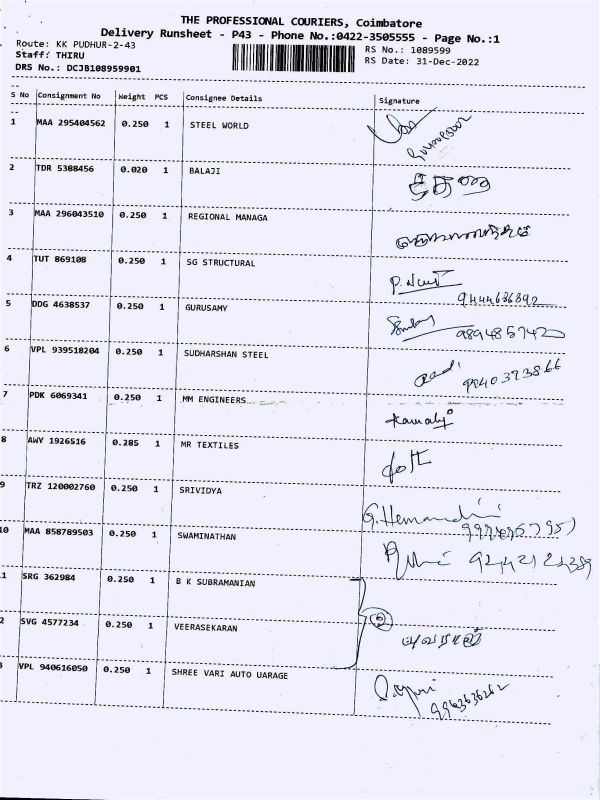 THE PROFESSIONAL COURIERS, Coimbatore
Delivery Runsheet - P43 - Phone No.:0422-3505555 - Page No.:1
Route: KK PUDHUR-2-43 RS No.: 1089599
Staff: THIRU RS Date: 31-Dec-2022
DRS No.: DCJB108959901
S No Consignment No Weight PCS Consignee Details Signature
1 MAA 295404562 0.250 1 STEEL WORLD
2 TDR 5388456 0.020 1 BALAJI
3 MAA 296043510 0.250 1 REGIONAL MANAGA
4 TUT 869108 0.250 1 SG STRUCTURAL
9444686892
5 DDG 4638537 0.250 1 GURUSAMY
9894857420
6 VPL 939518204 0.250 1 SUDHARSHAN STEEL
9840393866
7 PDK 6069341 0.250 1 MM ENGINEERS
Kamalji
8 AWY 1926516 0.285 1 MR TEXTILES
9 TRZ 120002760 0.250 1 SRIVIDYA
G. Hemandini
10 MAA 858789503 0.250 1 SWAMINATHAN
1 SRG 362984 0.250 1 B K SUBRAMANIAN
2 SVG 4577234 0.250 1 VEERASEKARAN
3 VPL 940616050 0.250 1 SHREE VARI AUTO UARAGE
9963636262